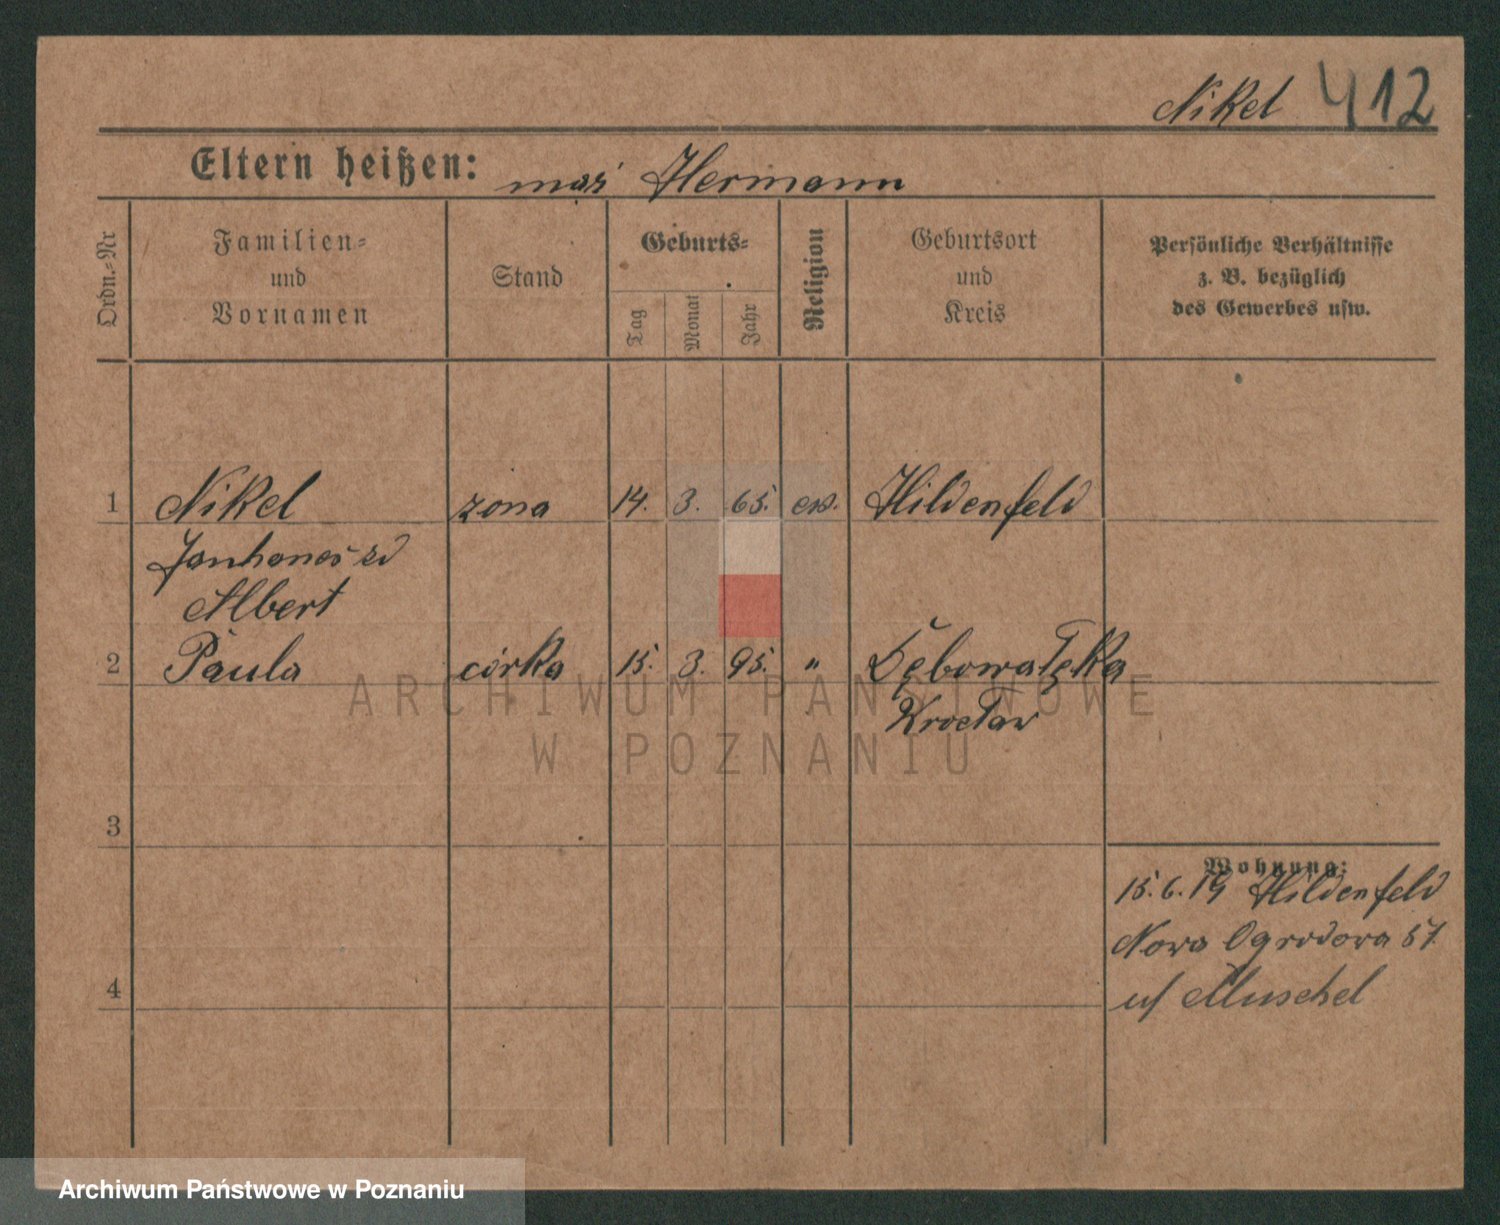 Nikel 412
Eltern heißen: mąż Hermann
Ordn.-Nr
Familien-
und
Vornamen
Stand
Geburts-
Tag
Monat
Jahr
Religion
Geburtsort
und
Kreis
Persönliche Verhältnisse
z. B. bezüglich
des Gewerbes usw.
1 Nikel żona 14. 3. 65. ew. Hildenfeld
Albert
2 Paula córka 15. 3. 95. " Dębowałęka
Wrocław
3
4
Wohnung:
15.6.19 Hildenfeld
Nowo Ogrodowa 57
u/ Muschel
ARCHIWUM PAŃSTWOWE
W POZNANIU
Archiwum Państwowe w Poznaniu